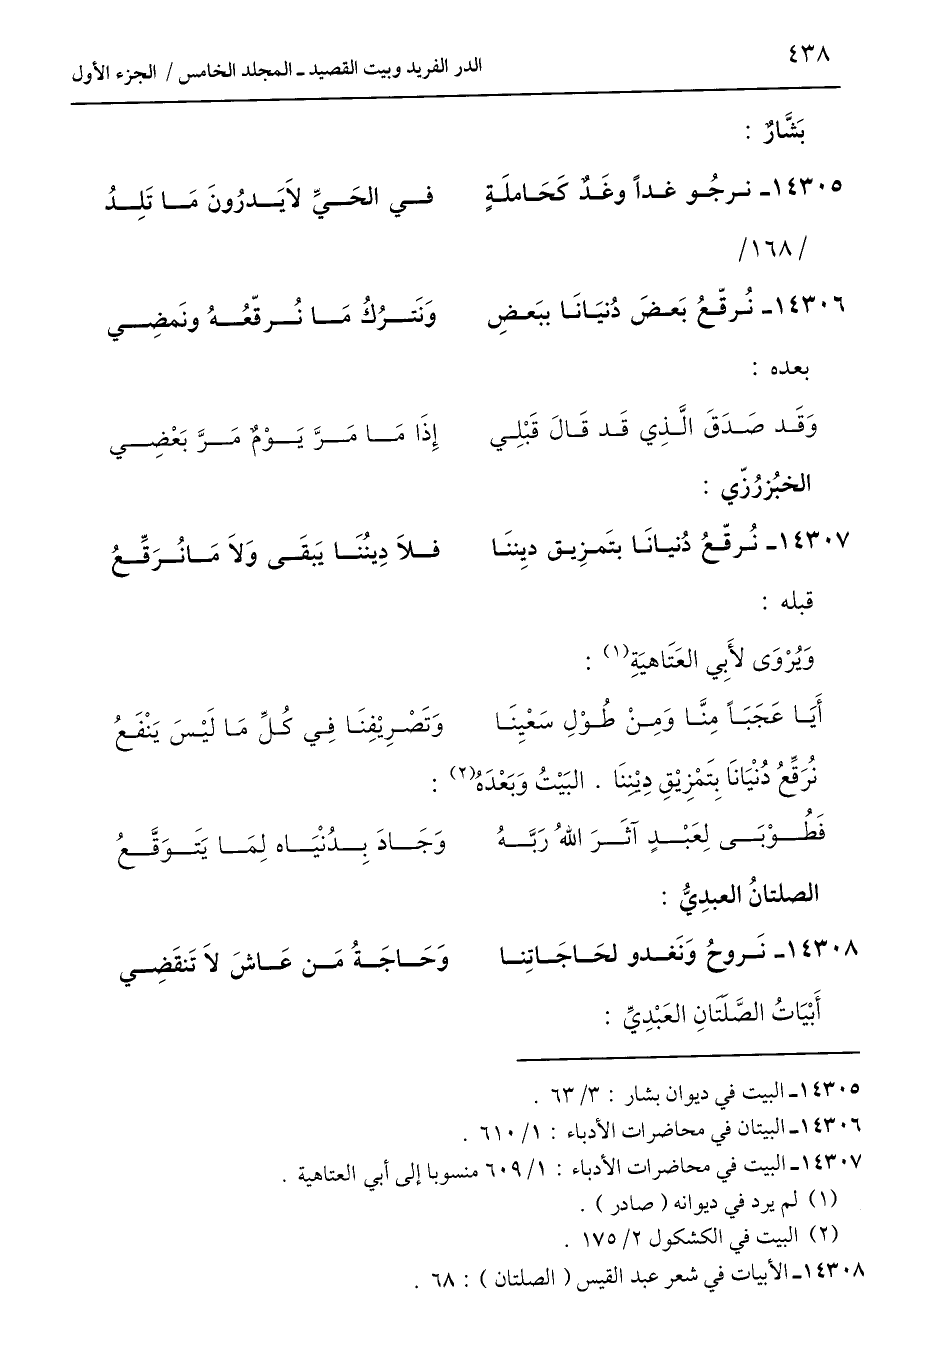 ٤٣٨
الدر الفريد وبيت القصيد ـ المجلد الخامس / الجزء الأول
بَشَّارٌ :
١٤٣٠٥ـ نـرجُـو غـداً وغَـدٌ كَحَـاملَـةٍ فـي الحَـيِّ لاَيَـدرُونَ مَـا تَلِـدُ
/١٦٨/
١٤٣٠٦ـ نُـرقّـعُ بَعـضَ دُنيَـانَـا ببَعـضِ وَنَتـرُكُ مَـا نُـرقّعُـهُ ونَمضِـي
بعده :
وَقَـد صَـدَقَ الَّـذِي قَـد قَـالَ قَبْلِـي إِذَا مَـا مَـرَّ يَـوْمٌ مَـرَّ بَعْضِـي
الخبُزرُزّي :
١٤٣٠٧ـ نُـرقّـعُ دُنيـانَـا بتَمـزِيـق ديننَـا فـلاَ دِيننُـا يَبقَـى وَلاَ مَـانُـرَقّـعُ
قبله :
وَيُرْوَى لأَبِي العَتَاهيَةِ(١) :
أَيَـا عَجَبَـاً مِنَّـا وَمِـنْ طُـوْلِ سَعْيِنَـا وَتَصْـرِيْفِنَـا فِـي كُـلِّ مَـا لَيْـسَ يَنْفَـعُ
نُرَقِّعُ دُنْيَانَا بِتَمْزِيْقِ دِيْنِنَا . البَيْتُ وَبَعْدَهُ(٢) :
فَطُـوْبَـى لِعَبْـدٍ آثَـرَ اللهُ رَبَّـهُ وَجَـادَ بِـدُنْيَـاه لِمَـا يَتَـوَقَّـعُ
الصلتانُ العبدِيُّ :
١٤٣٠٨ـ نَـروحُ وَنَغـدو لحَـاجَـاتنـا وَحَـاجَـةُ مَـن عَـاشَ لاَ تَنقَضِـي
أَبْيَاتُ الصَّلَتَانِ العَبْدِيِّ :
١٤٣٠٥ـ البيت في ديوان بشار : ٣/ ٦٣ .
١٤٣٠٦ـ البيتان في محاضرات الأدباء : ١/ ٦١٠ .
١٤٣٠٧ـ البيت في محاضرات الأدباء : ١/ ٦٠٩ منسوبا إلى أبي العتاهية .
(١) لم يرد في ديوانه ( صادر ) .
(٢) البيت في الكشكول ٢/ ١٧٥ .
١٤٣٠٨ـ الأبيات في شعر عبد القيس ( الصلتان ) : ٦٨ .